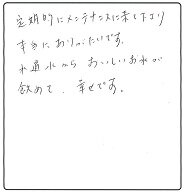 定期的にメンテナンスに来て下さり
本当にありがたいです。
水道水から おいしいお水が
飲めて、幸せです。